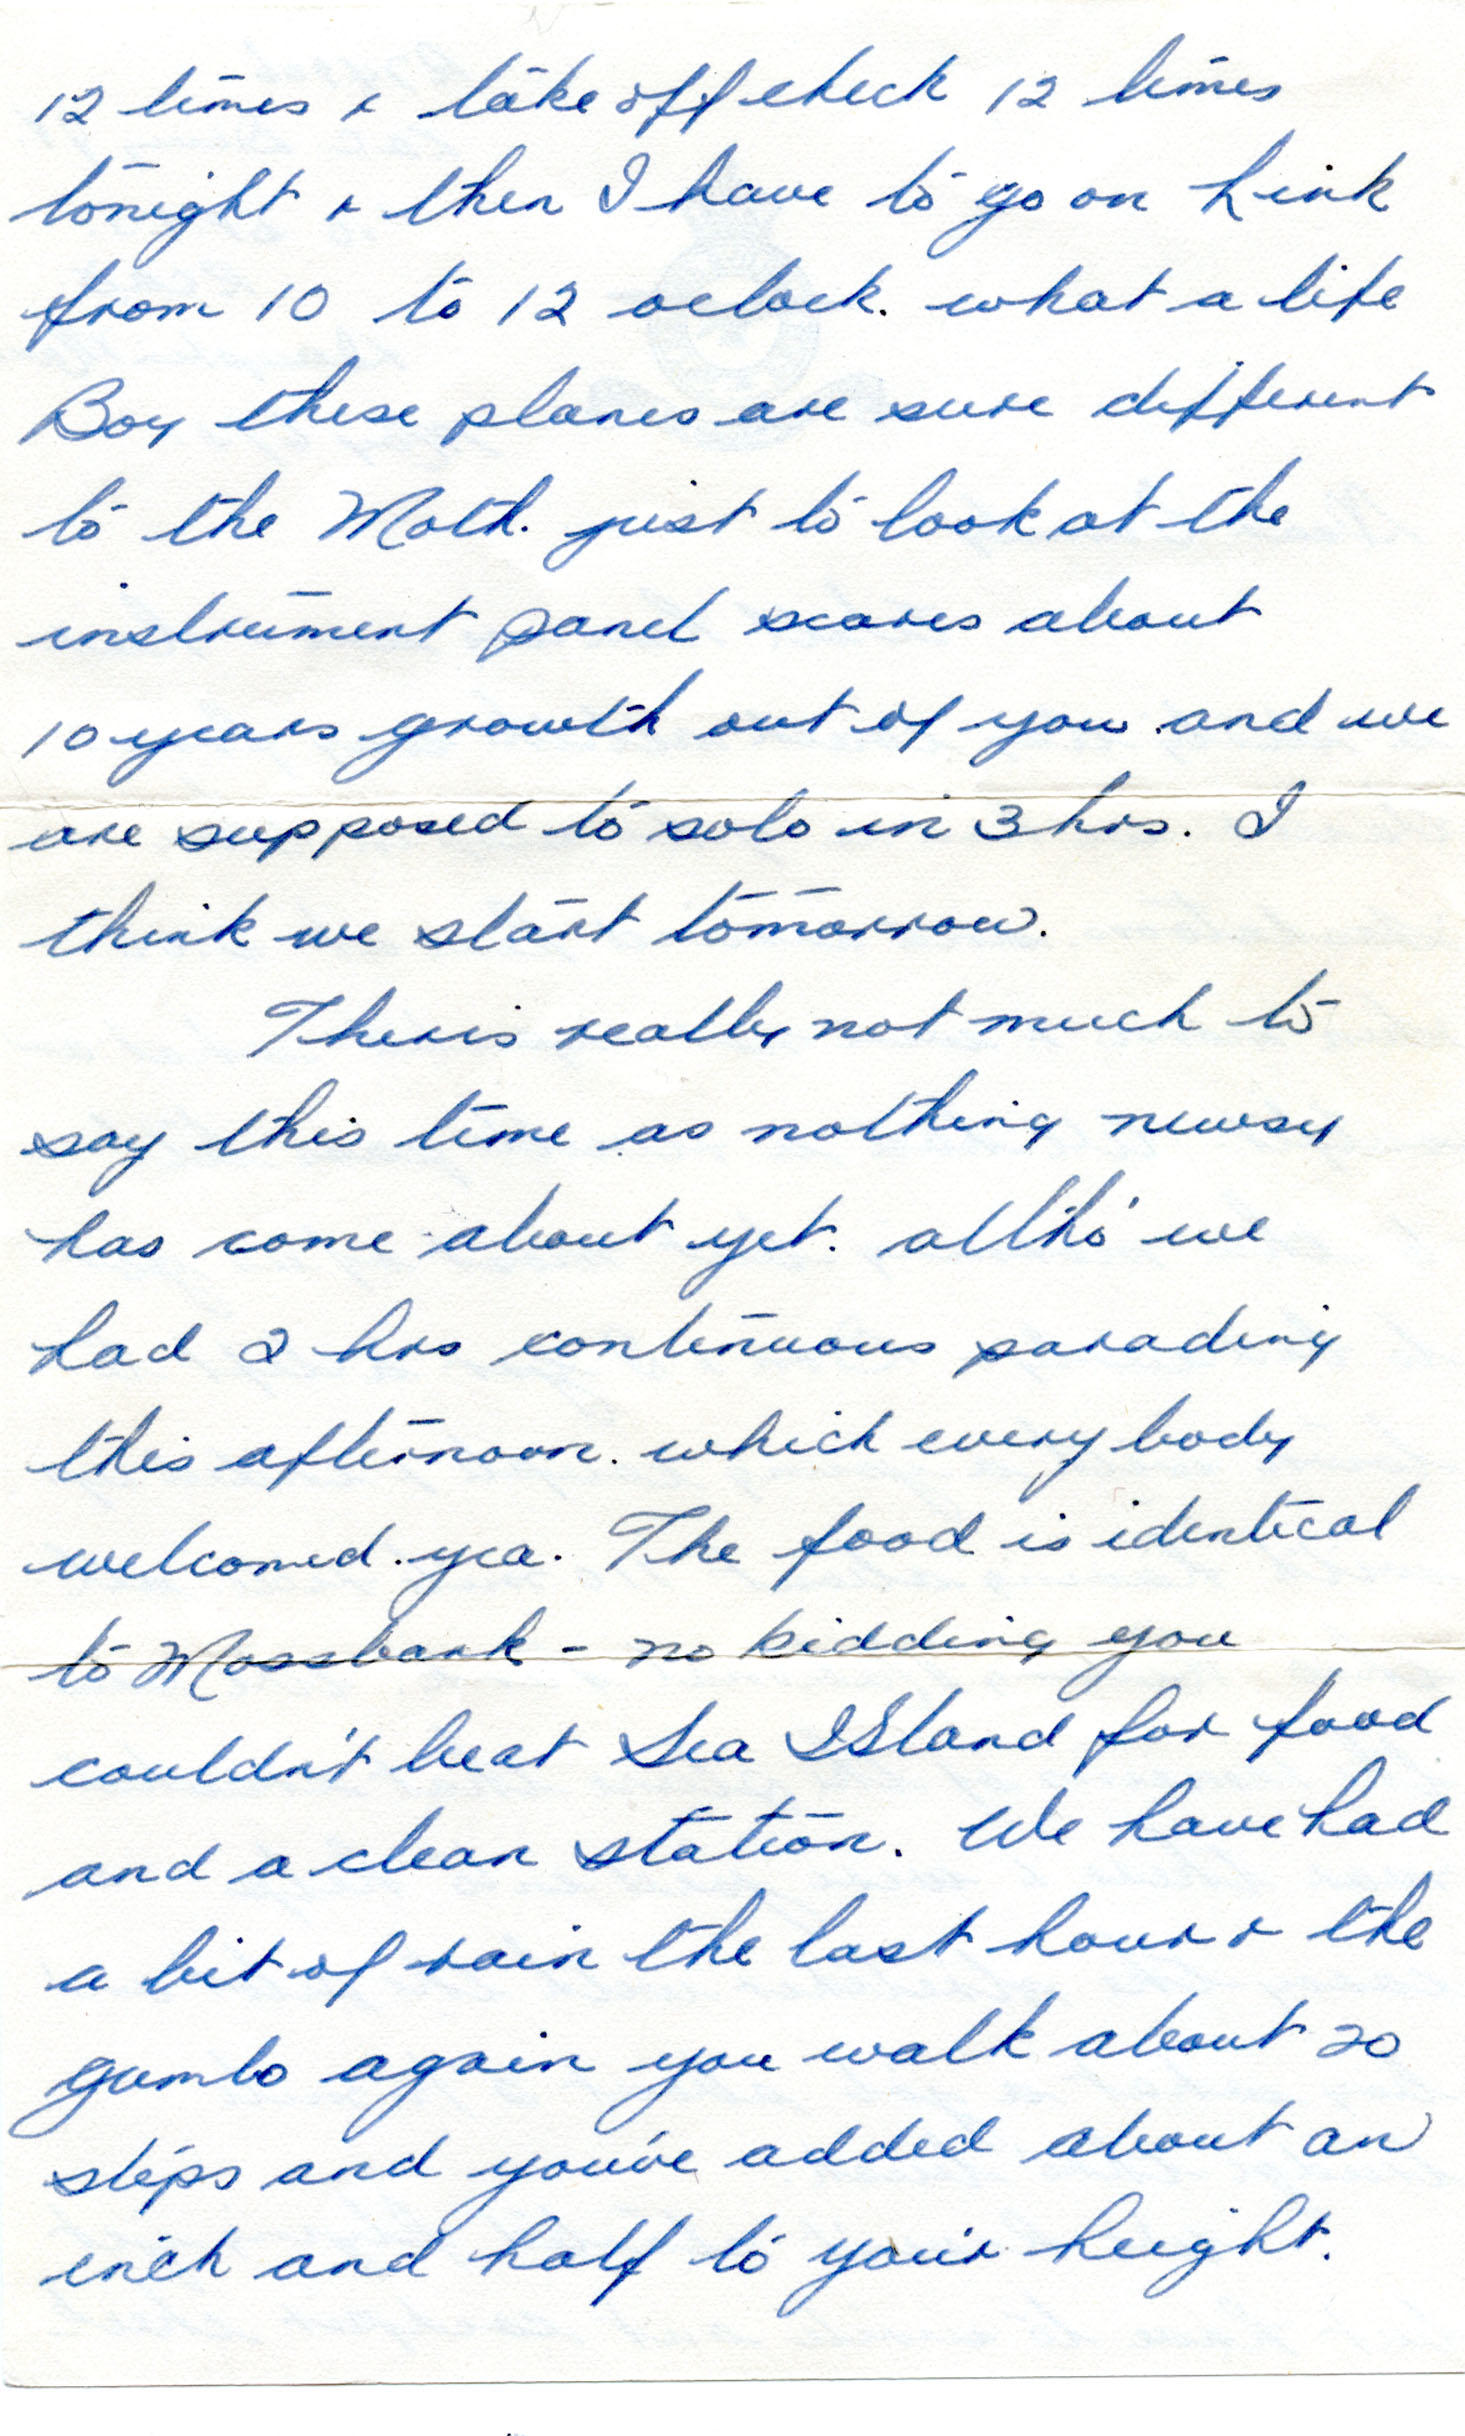 12 times & take off check 12 times
tonight & then I have to go on Link
from 10 to 12 oclock. what a life
Boy these planes are sure different
to the Moth. just to look at the
instrument panel scares about
10 years growth out of you and we
are supposed to solo in 3 hrs. I
think we start tomorrow.
Theris really not much to
say this time as nothing newsy
has come about yet. altho' we
had 2 hrs continuous parading
this afternoon. which everybody
welcomed. yea. The food is identical
to Mossbank - no kidding you
couldn't beat Sea ISland for food
and a clean station. We have had
a bit of rain the last hour & the
gumbo again you walk about 20
steps and you've added about an
inch and half to your height.